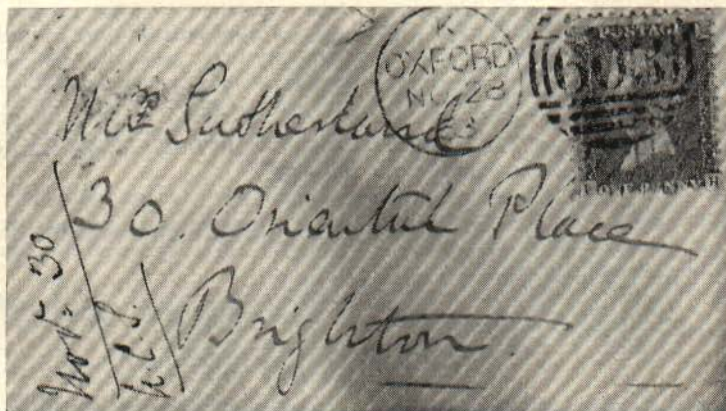 K
OXFORD
NO 28
63
603
POSTAGE
Sutherland
30. Oriental Place
Brighton.
Nov. 30